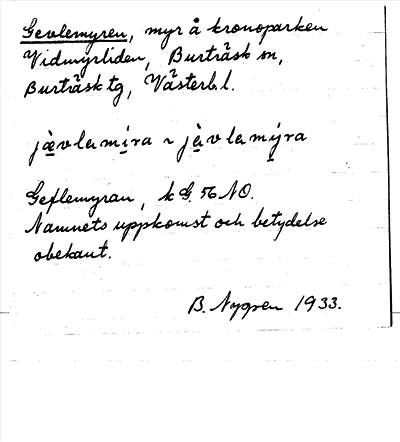 Gevlemyren, myr å kronoparken
Vidmyrliden, Burträsk sn,
Burträsk tg, Västerb.l.
jævlamira ~ jàvlamýra
Geflemyran, k G. 56 NO.
Namnets uppkomst och betydelse
obekant.
B. Nygren 1933.